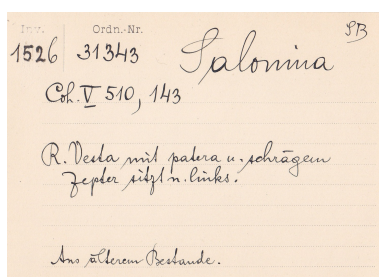 Inv. Ordn.-Nr. SB
1526 31343 Salonina
Coh. V 510, 143
R. Vesta mit patera u. schrägem
Zepter sitzt n. links.
Aus älterem Bestande.